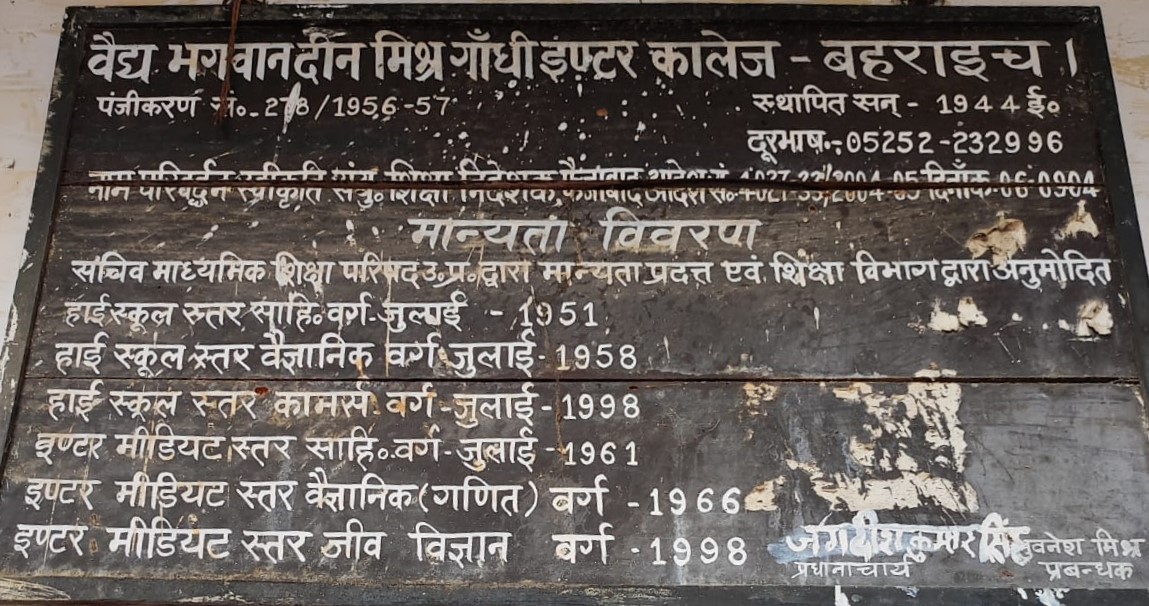 वैद्य भगवानदीन मिश्र गाँधी इण्टर कालेज - बहराइच ।
पंजीकरण सं०-278/1956-57 स्थापित सन् - 1944 ई०
दूरभाष-:05252-232996
नाम परिवर्द्धन स्वीकृति संयु० शिक्षा निदेशक, फैजाबाद आदेश सं०
मान्यता विवरण
सचिव माध्यमिक शिक्षा परिषद उ.प्र. द्वारा मान्यता प्रदत्त एवं शिक्षा विभाग द्वारा अनुमोदित
हाई स्कूल स्तर साहि० वर्ग-जुलाई - 1951
हाई स्कूल स्तर वैज्ञानिक वर्ग जुलाई-1958
हाई स्कूल स्तर कामर्स वर्ग-जुलाई-1998
इण्टर मीडियट स्तर साहि०वर्ग-जुलाई-1961
इण्टर मीडियट स्तर वैज्ञानिक(गणित) वर्ग -1966
इण्टर मीडियट स्तर जीव विज्ञान वर्ग -1998
जगदीश कुमार सिंह
प्रधानाचार्य
मिश्र
प्रबन्धक